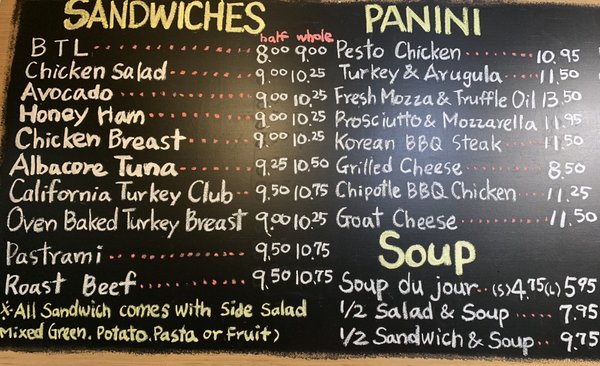 SANDWICHES
half whole
BTL 8.00 9.00
Chicken Salad 9.00 10.25
Avocado 9.00 10.25
Honey Ham 9.00 10.25
Chicken Breast 9.00 10.25
Albacore Tuna 9.25 10.50
California Turkey Club 9.50 10.75
Oven Baked Turkey Breast 9.00 10.25
Pastrami 9.50 10.75
Roast Beef 9.50 10.75
*All Sandwich comes With Side Salad
Mixed Green. Potato. Pasta or Fruit)
PANINI
Pesto Chicken 10.95
Turkey & Arugula 11.50
Fresh Mozza & Truffle Oil 13.50
Prosciutto & Mozzarella 11.95
Korean BBQ Steak 11.50
Grilled Cheese 8.50
Chipotle BBQ Chicken 11.25
Goat Cheese 11.50
Soup
Soup du jour (S) 4.75 (L) 5.95
1/2 Salad & Soup 7.95
1/2 Sandwich & Soup 9.75